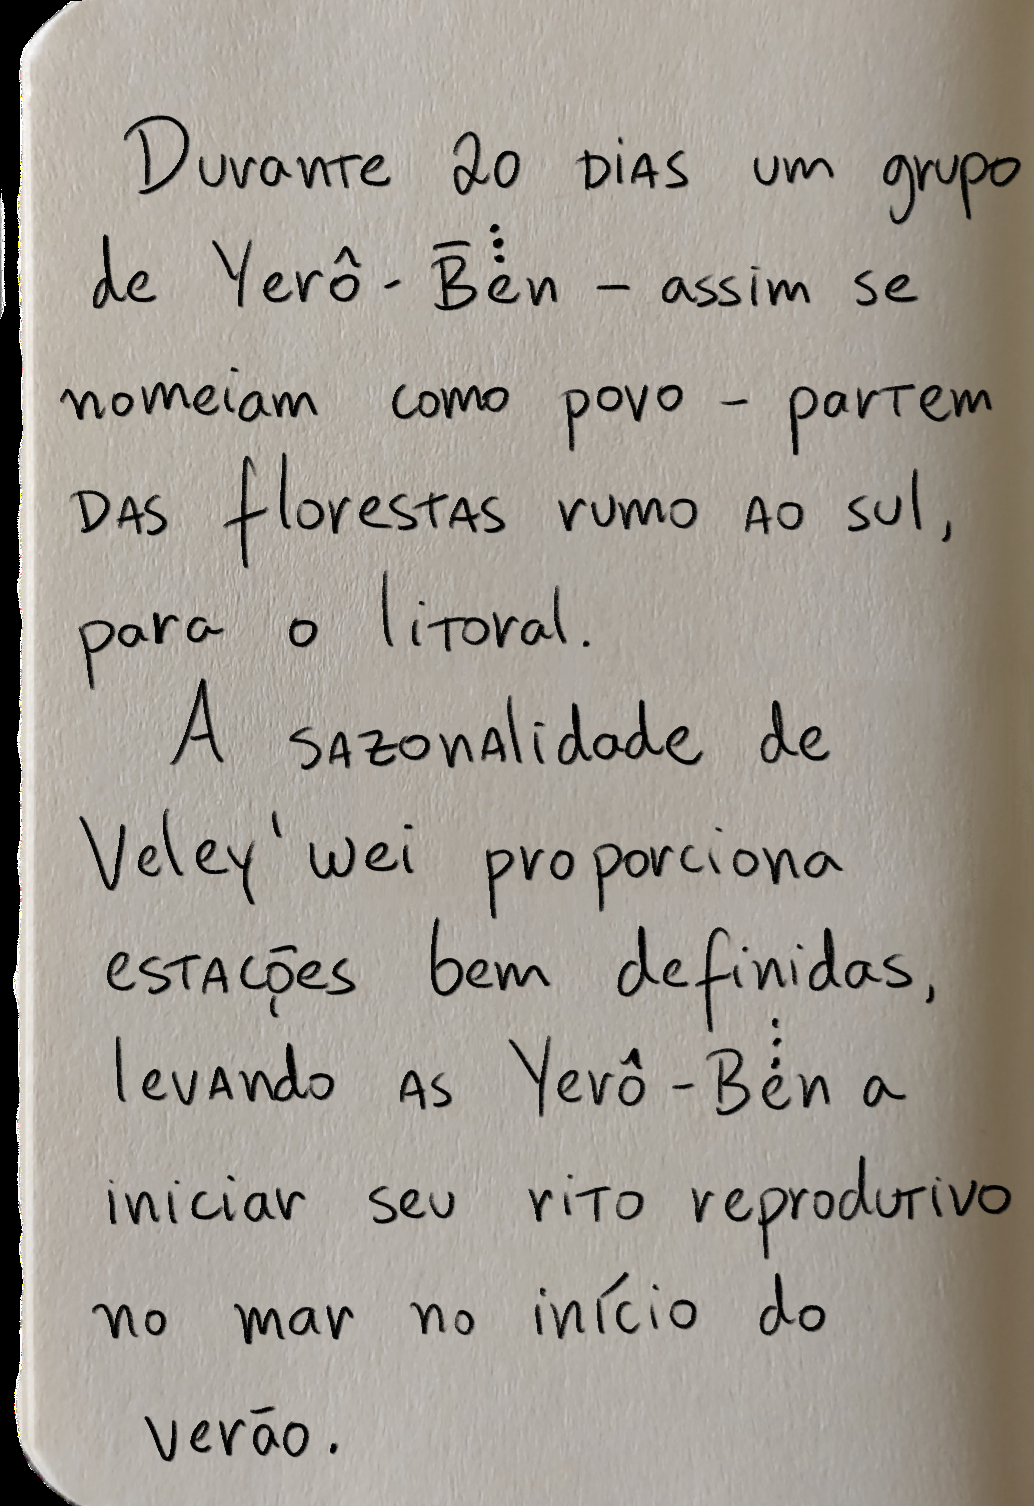 Durante 20 dias um grupo
de Yerô-B̅ė̇̇n – assim se
nomeiam como povo – partem
das florestas rumo ao sul,
para o litoral.
A sazonalidade de
Veley'wei proporciona
estações bem definidas,
levando as Yerô-Bė̇̇n a
iniciar seu rito reprodutivo
no mar no início do
verão.